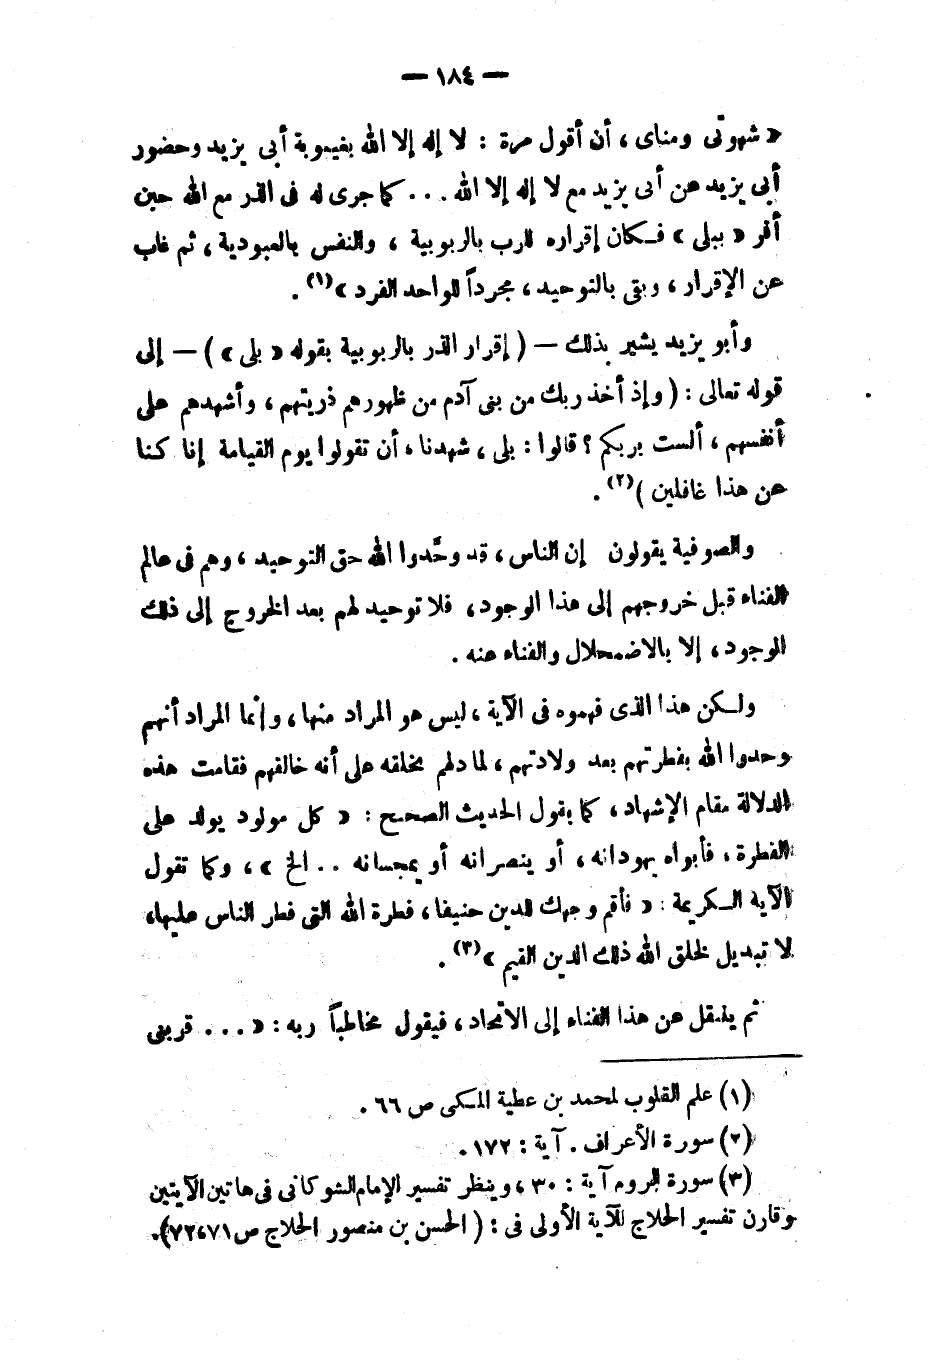 — ١٨٤ —
« شهوتى ومناى ، أن أقول مرة : لا إله إلا الله بغيبوبة أبى يزيد وحضور
أبى يزيد عن أبى يزيد مع لا إله إلا الله ... كما جرى له فى الذر مع الله حين
أقر « ببلى » فكان إقراره للرب بالربوبية ، وللنفس بالعبودية ، ثم غاب
عن الإقرار ، وبقى بالتوحيد ، مجرداً للواحد الفرد »(١) .
وأبو يزيد يشير بذلك — ( إقرار الذر بالربوبية بقوله « بلى » ) — إلى
قوله تعالى : ( وإذ أخذ ربك من بنى آدم من ظهورهم ذريتهم ، وأشهدهم على
أنفسهم ، ألست بربكم ؟ قالوا : بلى ، شهدنا ، أن تقولوا يوم القيامة إنا كنا
عن هذا غافلين )(٢) .
والصوفية يقولون إن الناس ، قد وحَّدوا الله حق التوحيد ، وهم فى عالم
الفناء قبل خروجهم إلى هذا الوجود ، فلا توحيد لهم بعد الخروج إلى ذلك
الوجود ، إلا بالاضمحلال والفناء عنه .
ولكن هذا الذى فهموه فى الآية ، ليس هو المراد منها ، وإنما المراد أنهم
وحدوا الله بفطرتهم بعد ولادتهم ، لما دلهم بخلقه على أنه خالقهم فقامت هذه
الدلالة مقام الإشهاد ، كما يقول الحديث الصحيح : « كل مولود يولد على
الفطرة ، فأبواه يهودانه ، أو ينصرانه أو يمجسانه .. الخ » ، وكما تقول
الآية الكريمة : « فأقم وجهك للدين حنيفا ، فطرة الله التى فطر الناس عليها ،
لا تبديل لخلق الله ذلك الدين القيم »(٣) .
ثم ينتقل من هذا الفناء إلى الاتحاد ، فيقول مخاطباً ربه : « ... قربنى
(١) علم القلوب لمحمد بن عطية المكى ص ٦٦ .
(٢) سورة الأعراف . آية : ١٧٢ .
(٣) سورة الروم آية : ٣٠ ، وينظر تفسير الإمام الشوكانى فى هاتين الآيتين
وقارن تفسير الحلاج للآية الأولى فى : ( الحسن بن منصور الحلاج ص ٧١ ، ٧٢ ) .